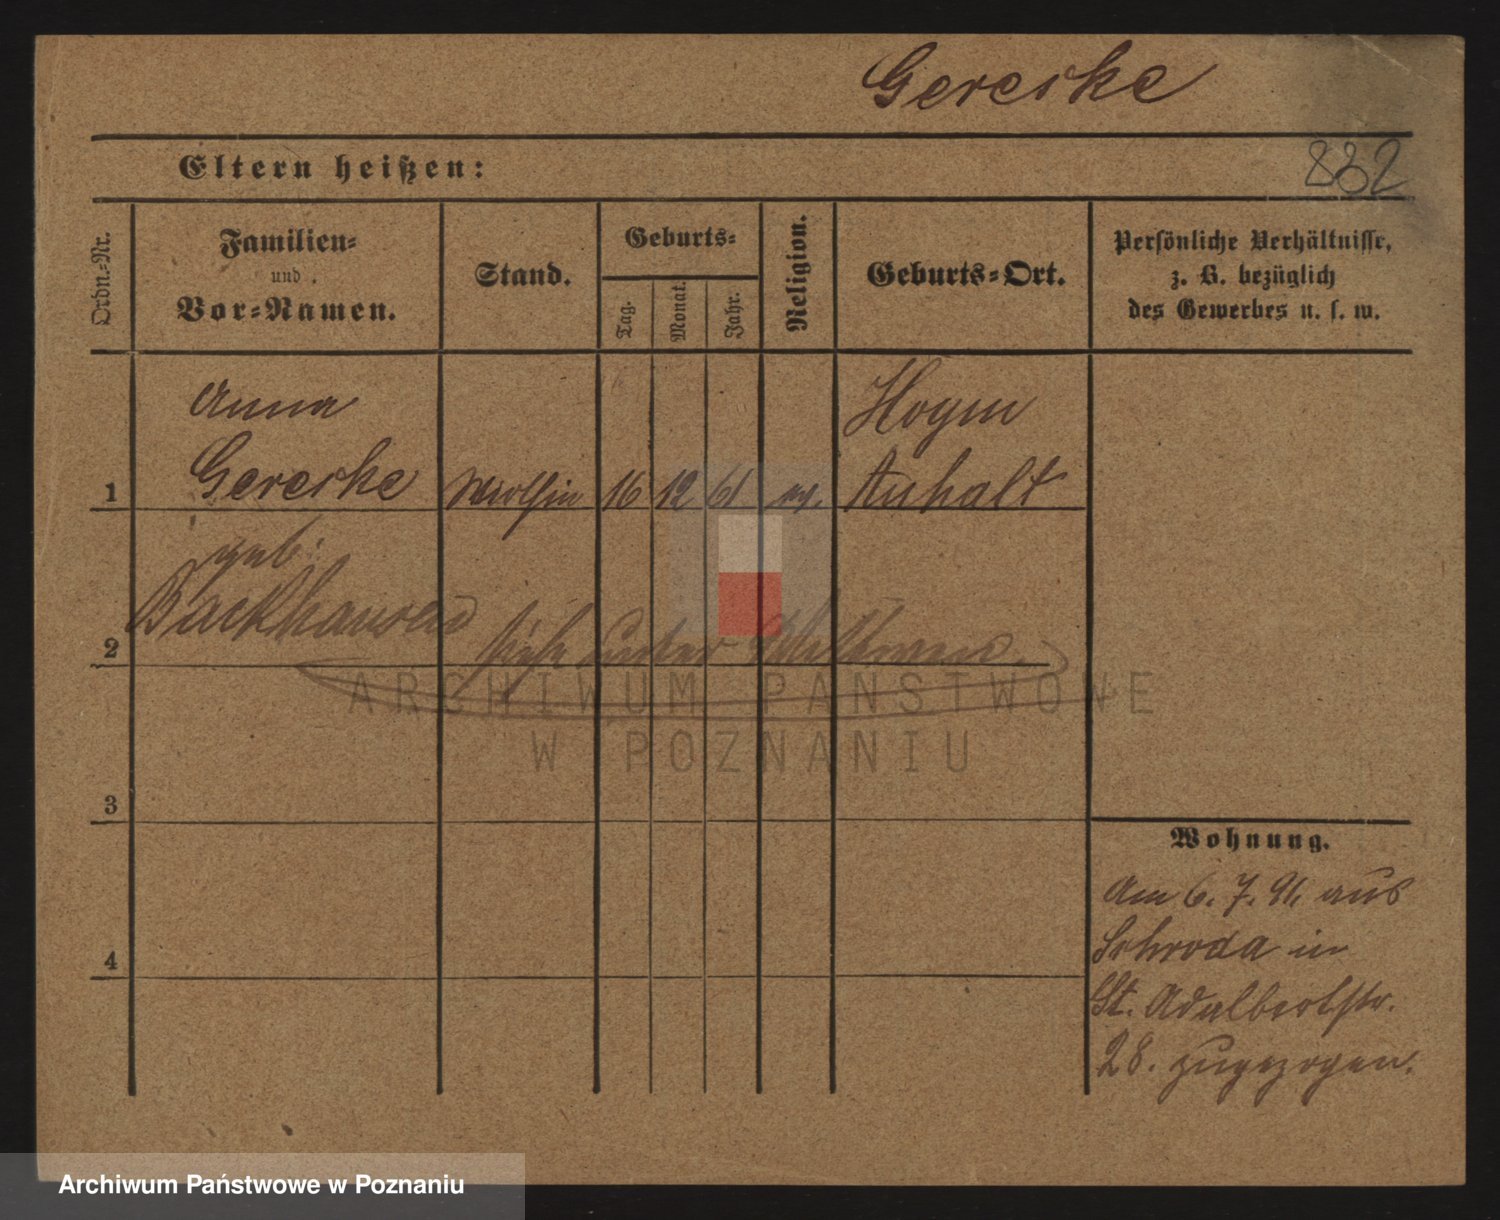 Gereske
882
Eltern heißen:
Ordn.-Nr.
Familien-
und
Vor-Namen.
Stand.
Geburts-
Tag.
Monat.
Jahr.
Religion.
Geburts-Ort.
Persönliche Verhältnisse,
z. B. bezüglich
des Gewerbes u. s. w.
Anna
Gereske
1
16 12 61 ev.
Anhalt
geb:
Backhausen
2
siehe unter
3
4
Wohnung.
Am 6. 7. 91. aus
Schroda in
St. Adalbertstr.
28. zugezogen.
ARCHIWUM PAŃSTWOWE
W POZNANIU
Archiwum Państwowe w Poznaniu